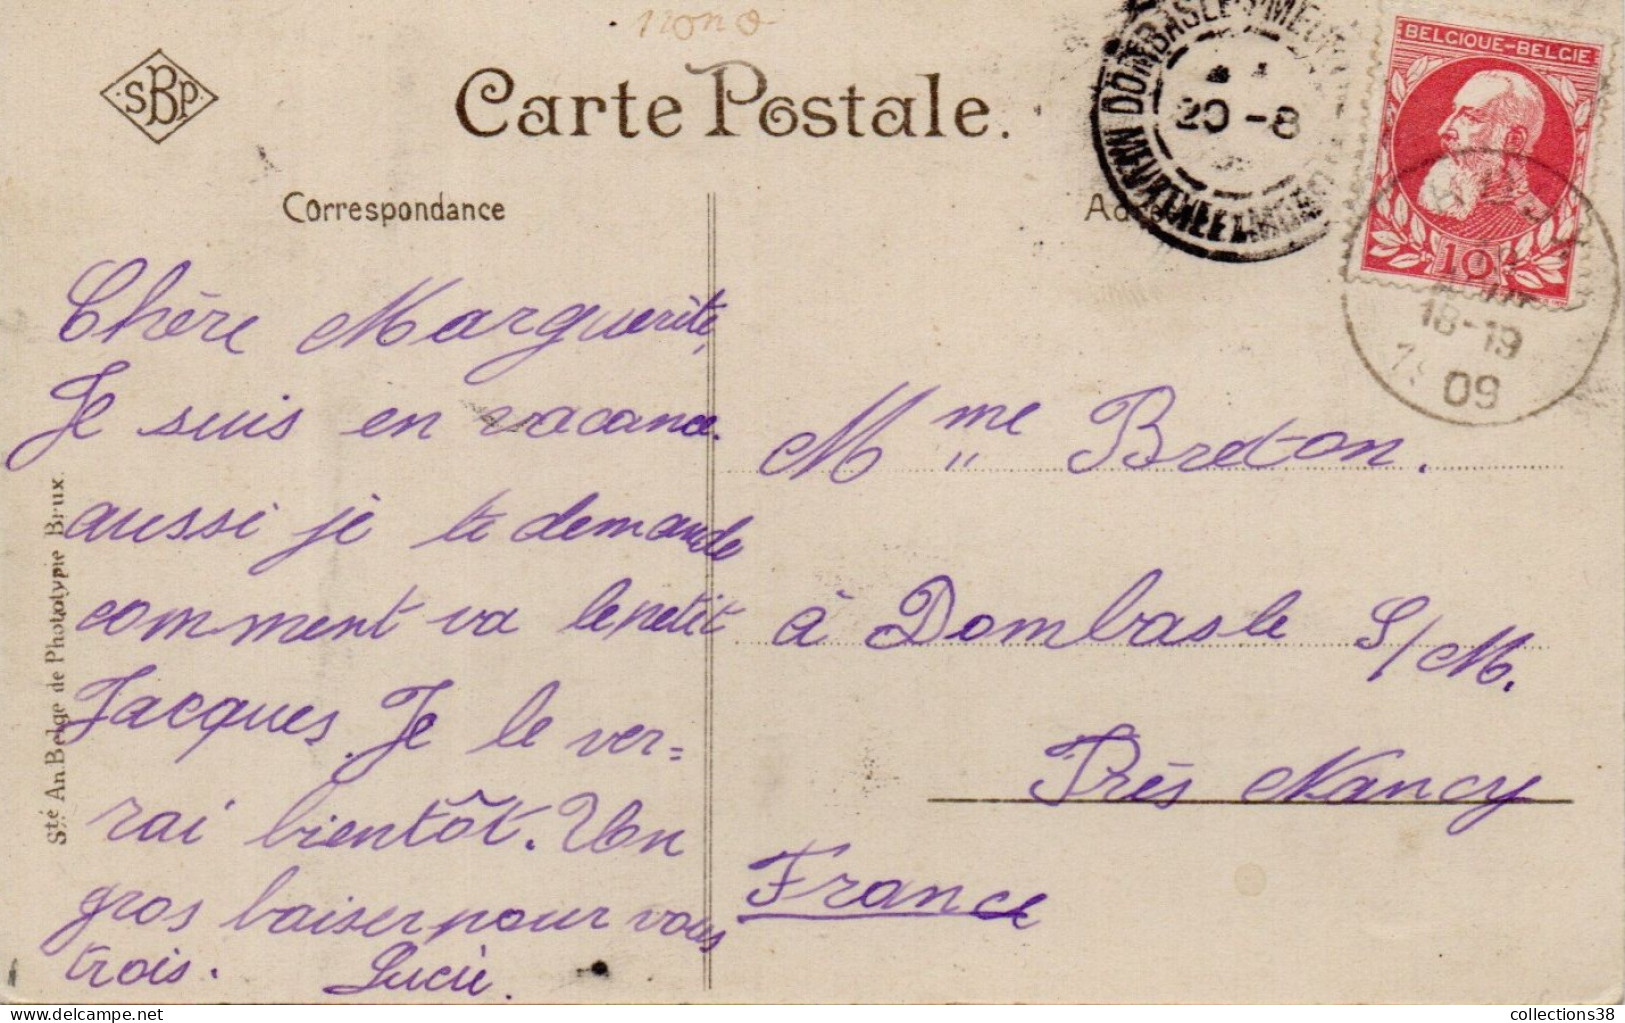 SBP
Carte Postale.
Correspondance
DOMBASLE-S-MEURTHE
20 -8
BELGIQUE-BELGIË
10
18-19
1909
Chère Marguerite,
Je suis en vacance.
aussi je te demande
comment va le petit
Jacques. Je le ver=
rai bientôt. Un
gros baiser pour vous
trois. Lucie.
Mme Breton.
à Dombasle S/M.
Près Nancy
France
Sté An. Belge de Phototypie Brux.
collections38